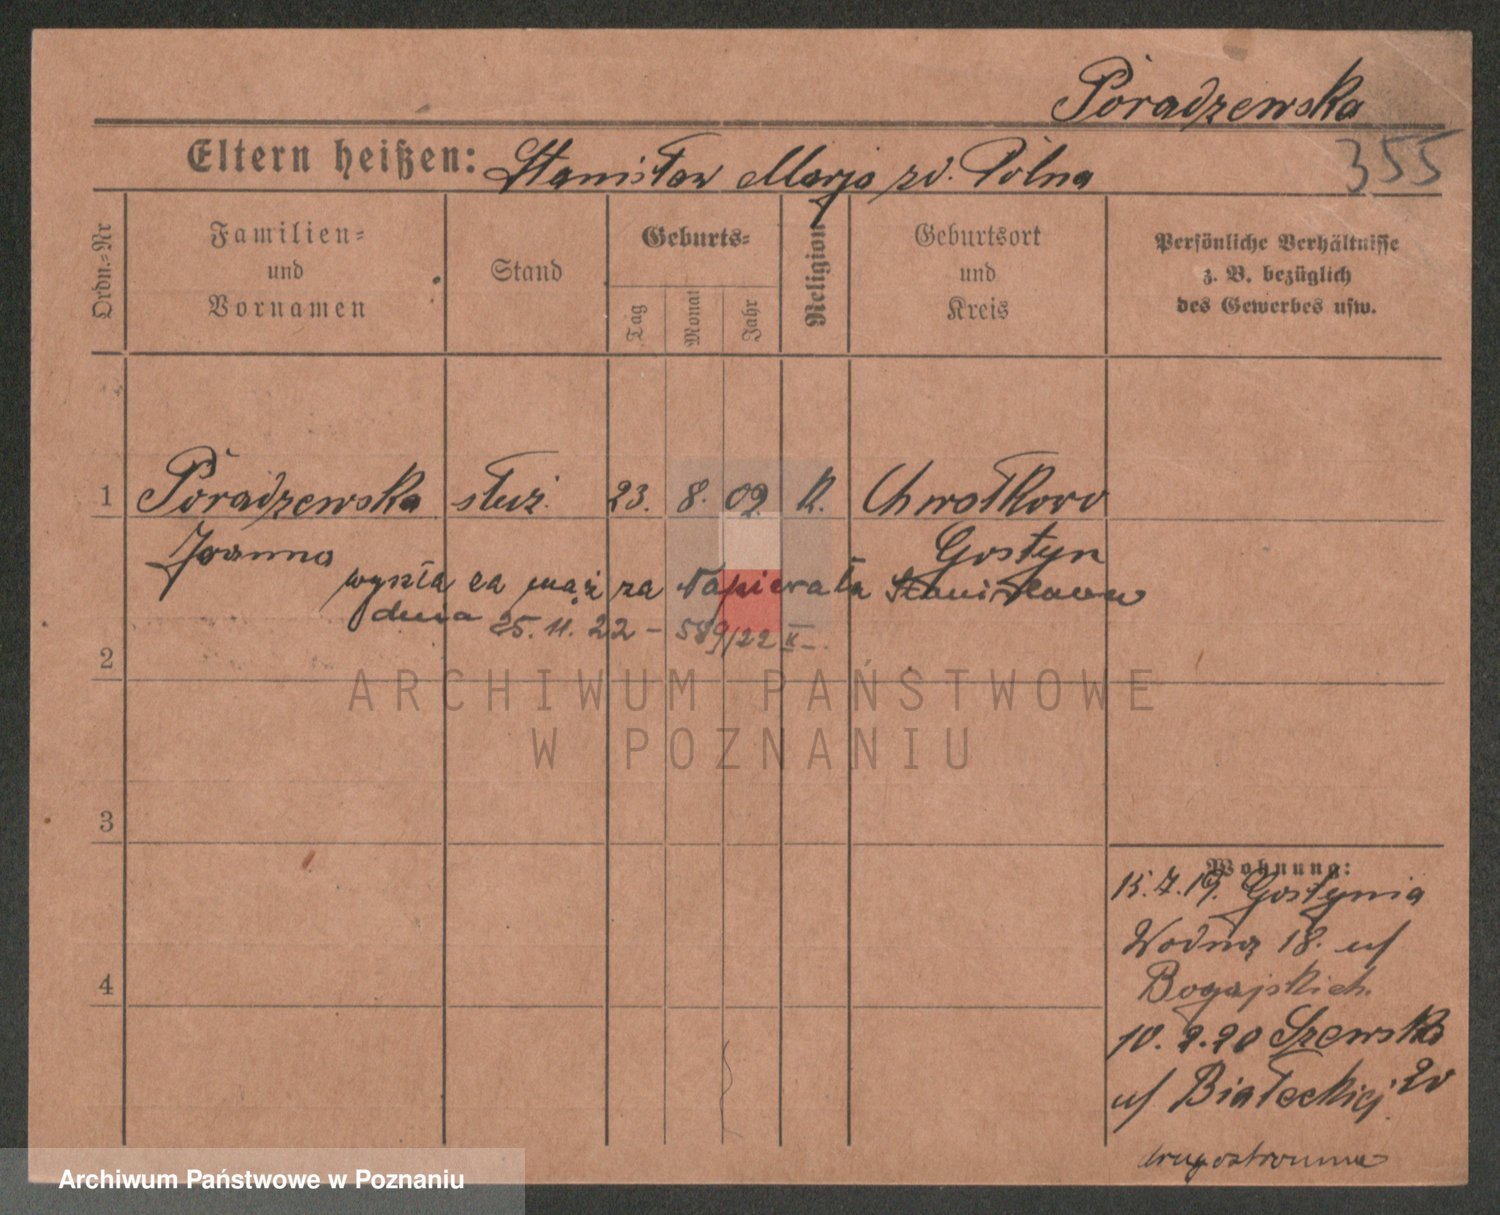 Poradzewska
355
Eltern heißen: Stanisław Marja zd. Polna
Ordn.-Nr
Familien-
und
Vornamen
Stand
Geburts-
Tag
Monat
Jahr
Religion
Geburtsort
und
Kreis
Persönliche Verhältnisse
z. B. bezüglich
des Gewerbes usw.
1 Poradzewska służ. 23. 8. 02. K. Chwałkowo
Joanna Gostyn
wyszła za mąż za Napierała Stanisława
dnia 25. 11. 22 - 589/22 II -
2
3
4
Wohnung:
15.7.19. Gostynia
Wodna 18. u/
Bogajskich.
10.2.20 Szewska
20
u/ Białeckiej
ARCHIWUM PAŃSTWOWE
W POZNANIU
Archiwum Państwowe w Poznaniu